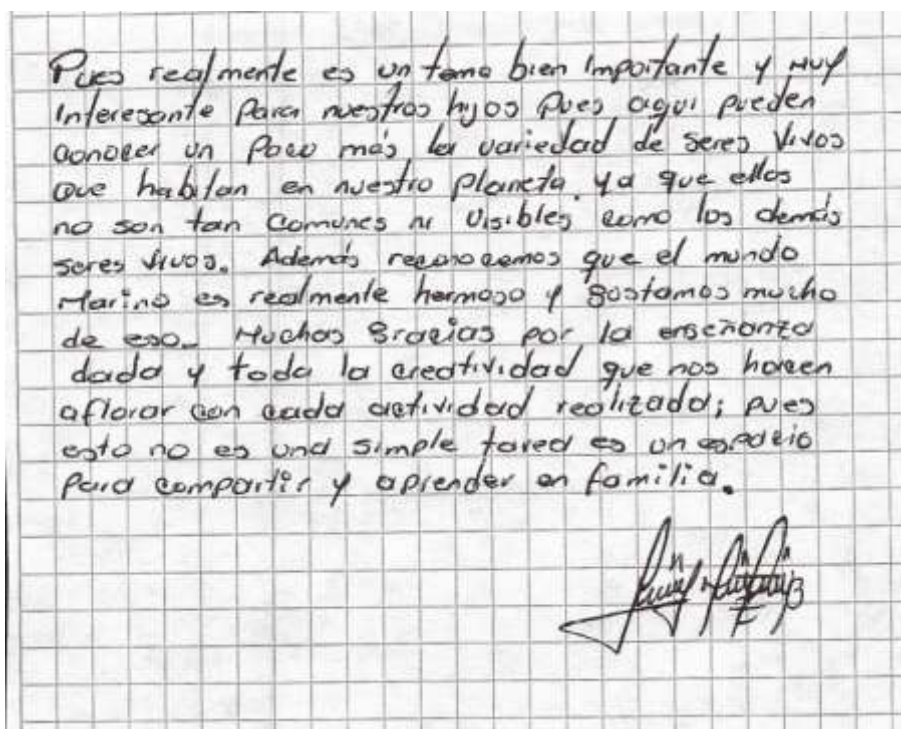 Pues realmente es un tema bien importante y muy
interesante para nuestros hijos pues aqui pueden
conocer un poco más la variedad de seres vivos
que habitan en nuestro planeta, ya que ellos
no son tan comunes ni visibles como los demás
seres vivos. Además reconocemos que el mundo
Marino es realmente hermoso y gustamos mucho
de eso. Muchas gracias por la enseñanza
dada y toda la creatividad que nos hacen
aflorar con cada actividad realizada; pues
esto no es una simple tarea es un espacio
para compartir y aprender en familia.